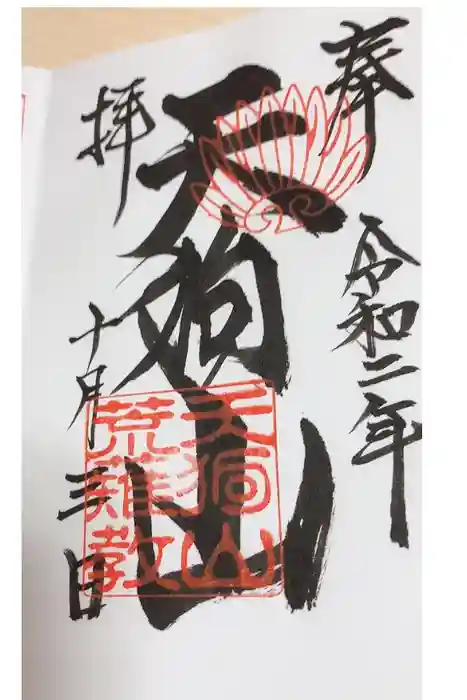 奉
令和二年
天狗山
拝
十月三日
天狗山
荒薙教